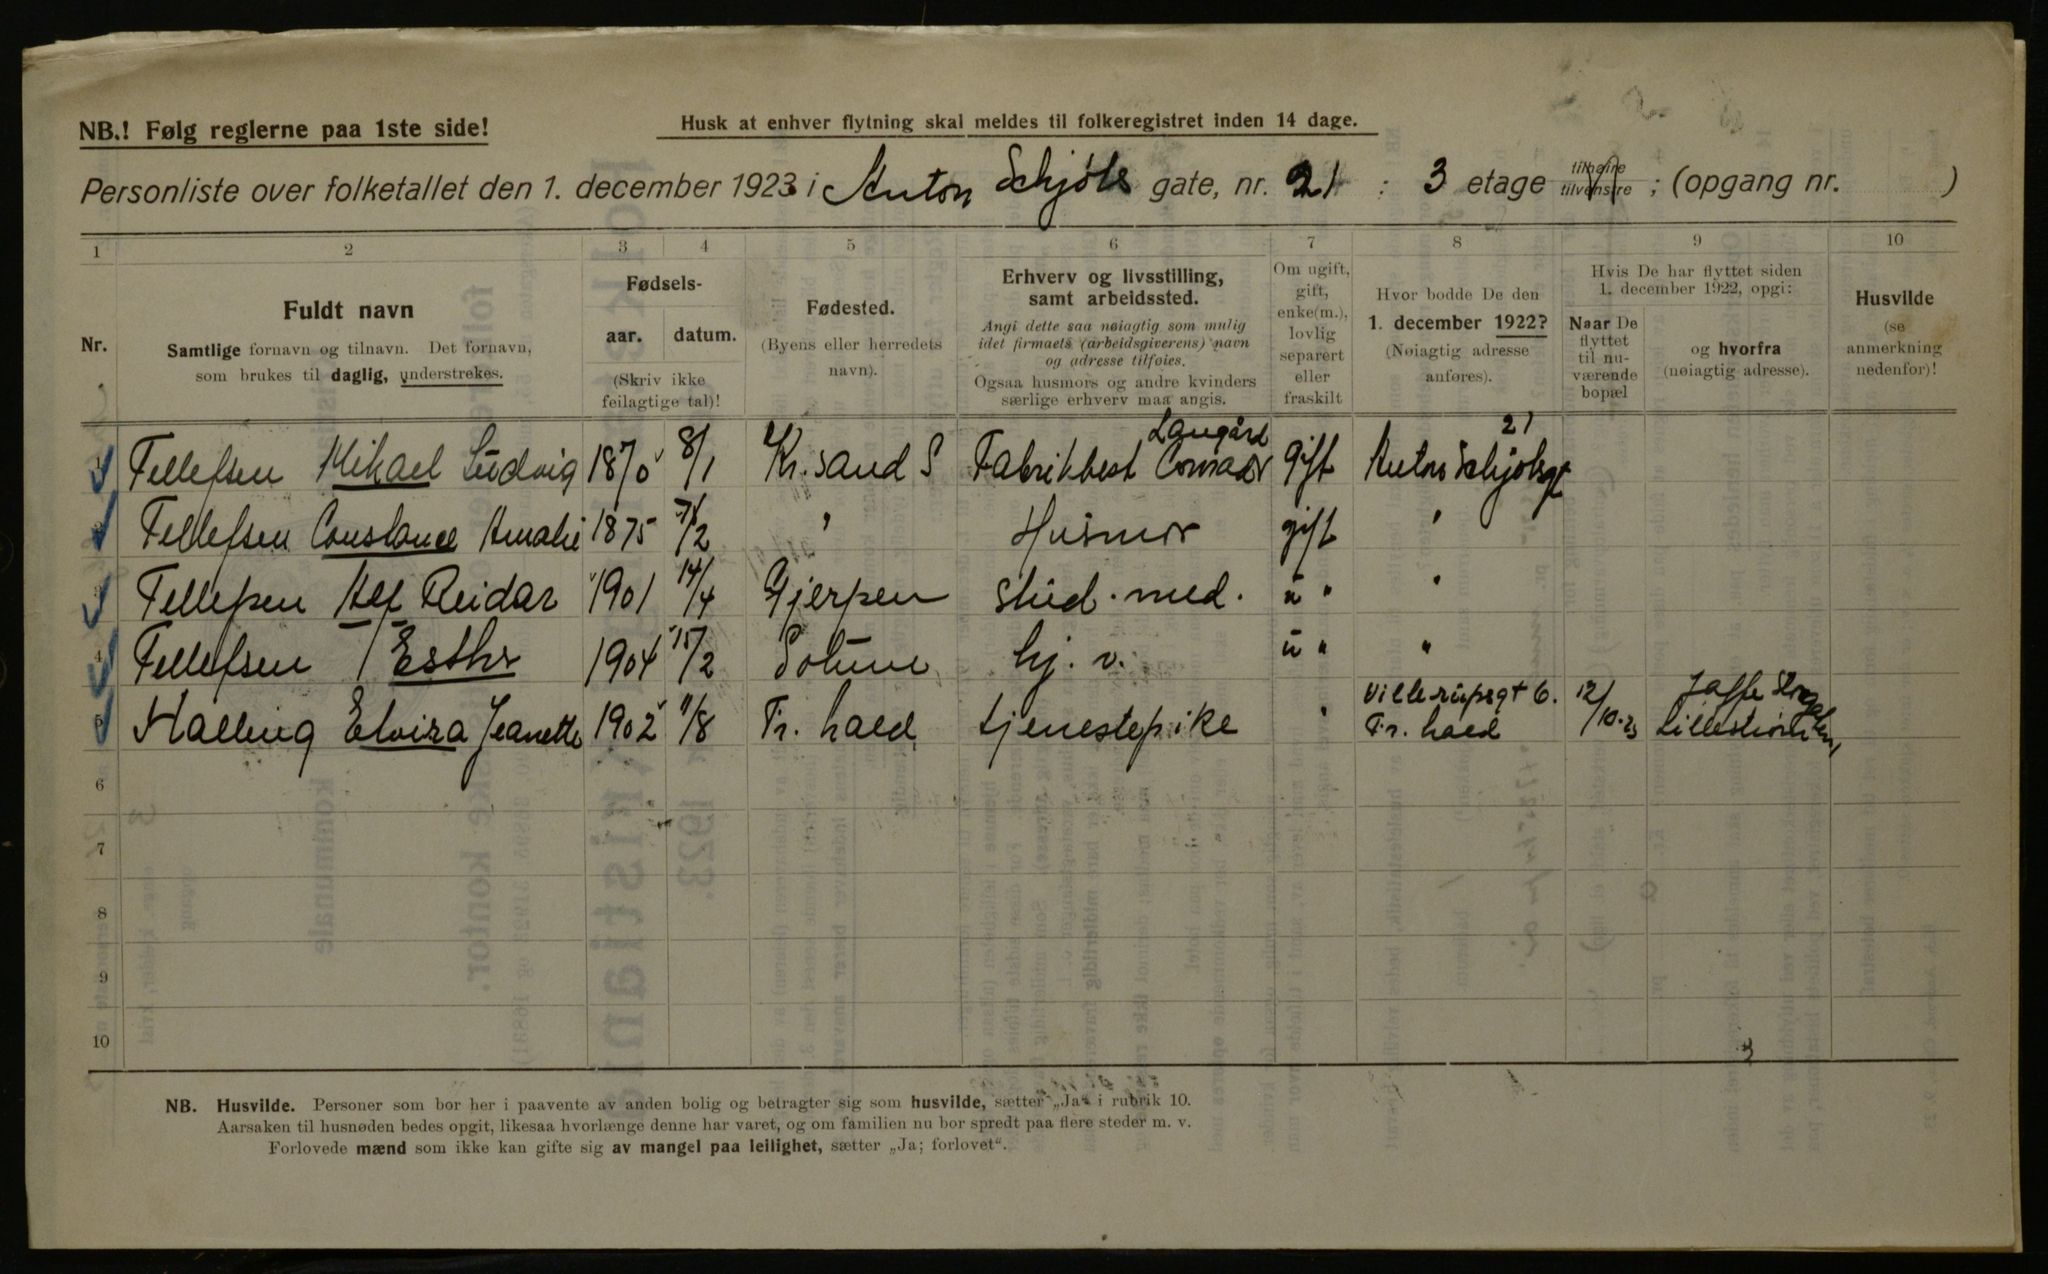 NB.! Følg reglerne paa 1ste side!
Husk at enhver flytning skal meldes til folkeregistret inden 14 dage.
Personliste over folketallet den 1. december 1923 i Anton Schjøts gate, nr. 21 : 3 etage tilhøire tilvenstre ; (opgang nr. )
1 2 3 4 5 6 7 8 9 10
Nr.
Fuldt navn
Samtlige fornavn og tilnavn. Det fornavn,
som brukes til daglig, understrekes.
Fødsels-
aar. datum.
(Skriv ikke
feilagtige tal)!
Fødested.
(Byens eller herredets
navn).
Erhverv og livsstilling,
samt arbeidssted.
Angi dette saa nøiagtig som mulig
idet firmaets (arbeidsgiverens) navn
og adresse tilføies.
Ogsaa husmors og andre kvinders
særlige erhverv maa angis.
Om ugift,
gift,
enke(m.),
lovlig
separert
eller
fraskilt
Hvor bodde De den
1. december 1922?
(Nøiagtig adresse
anføres).
Hvis De har flyttet siden
1. december 1922, opgi:
Naar De
flyttet
til nu-
værende
bopæl
og hvorfra
(nøiagtig adresse).
Husvilde
(se
anmerkning
nedenfor)!
Langård 21
1 Tellefsen Mikael Ludvig 1870 8/1 Kr.sand S Fabrikbest gift Anton Schjøtsgt
2 Tellefsen Constance Amalie 1875 /2 " Husmor gift "
3 Tellefsen Alf Reidar 1901 14/4 Gjerpen stud. med. u " "
4 Tellefsen Esther 1904 15/2 Solum hj. v. u " "
Villerupsgt 6. 12/10.23 Jaffe
5 Malling Elvira Jeanette 1902 11/8 Fr. hald tjenestepike " Fr. hald Lillestrøm
6
7
8
9
10
3
NB. Husvilde. Personer som bor her i paavente av anden bolig og betragter sig som husvilde, sætter „Ja“ i rubrik 10.
Aarsaken til husnøden bedes opgit, likesaa hvorlænge denne har varet, og om familien nu bor spredt paa flere steder m. v.
Forlovede mænd som ikke kan gifte sig av mangel paa leilighet, sætter „Ja; forlovet“.